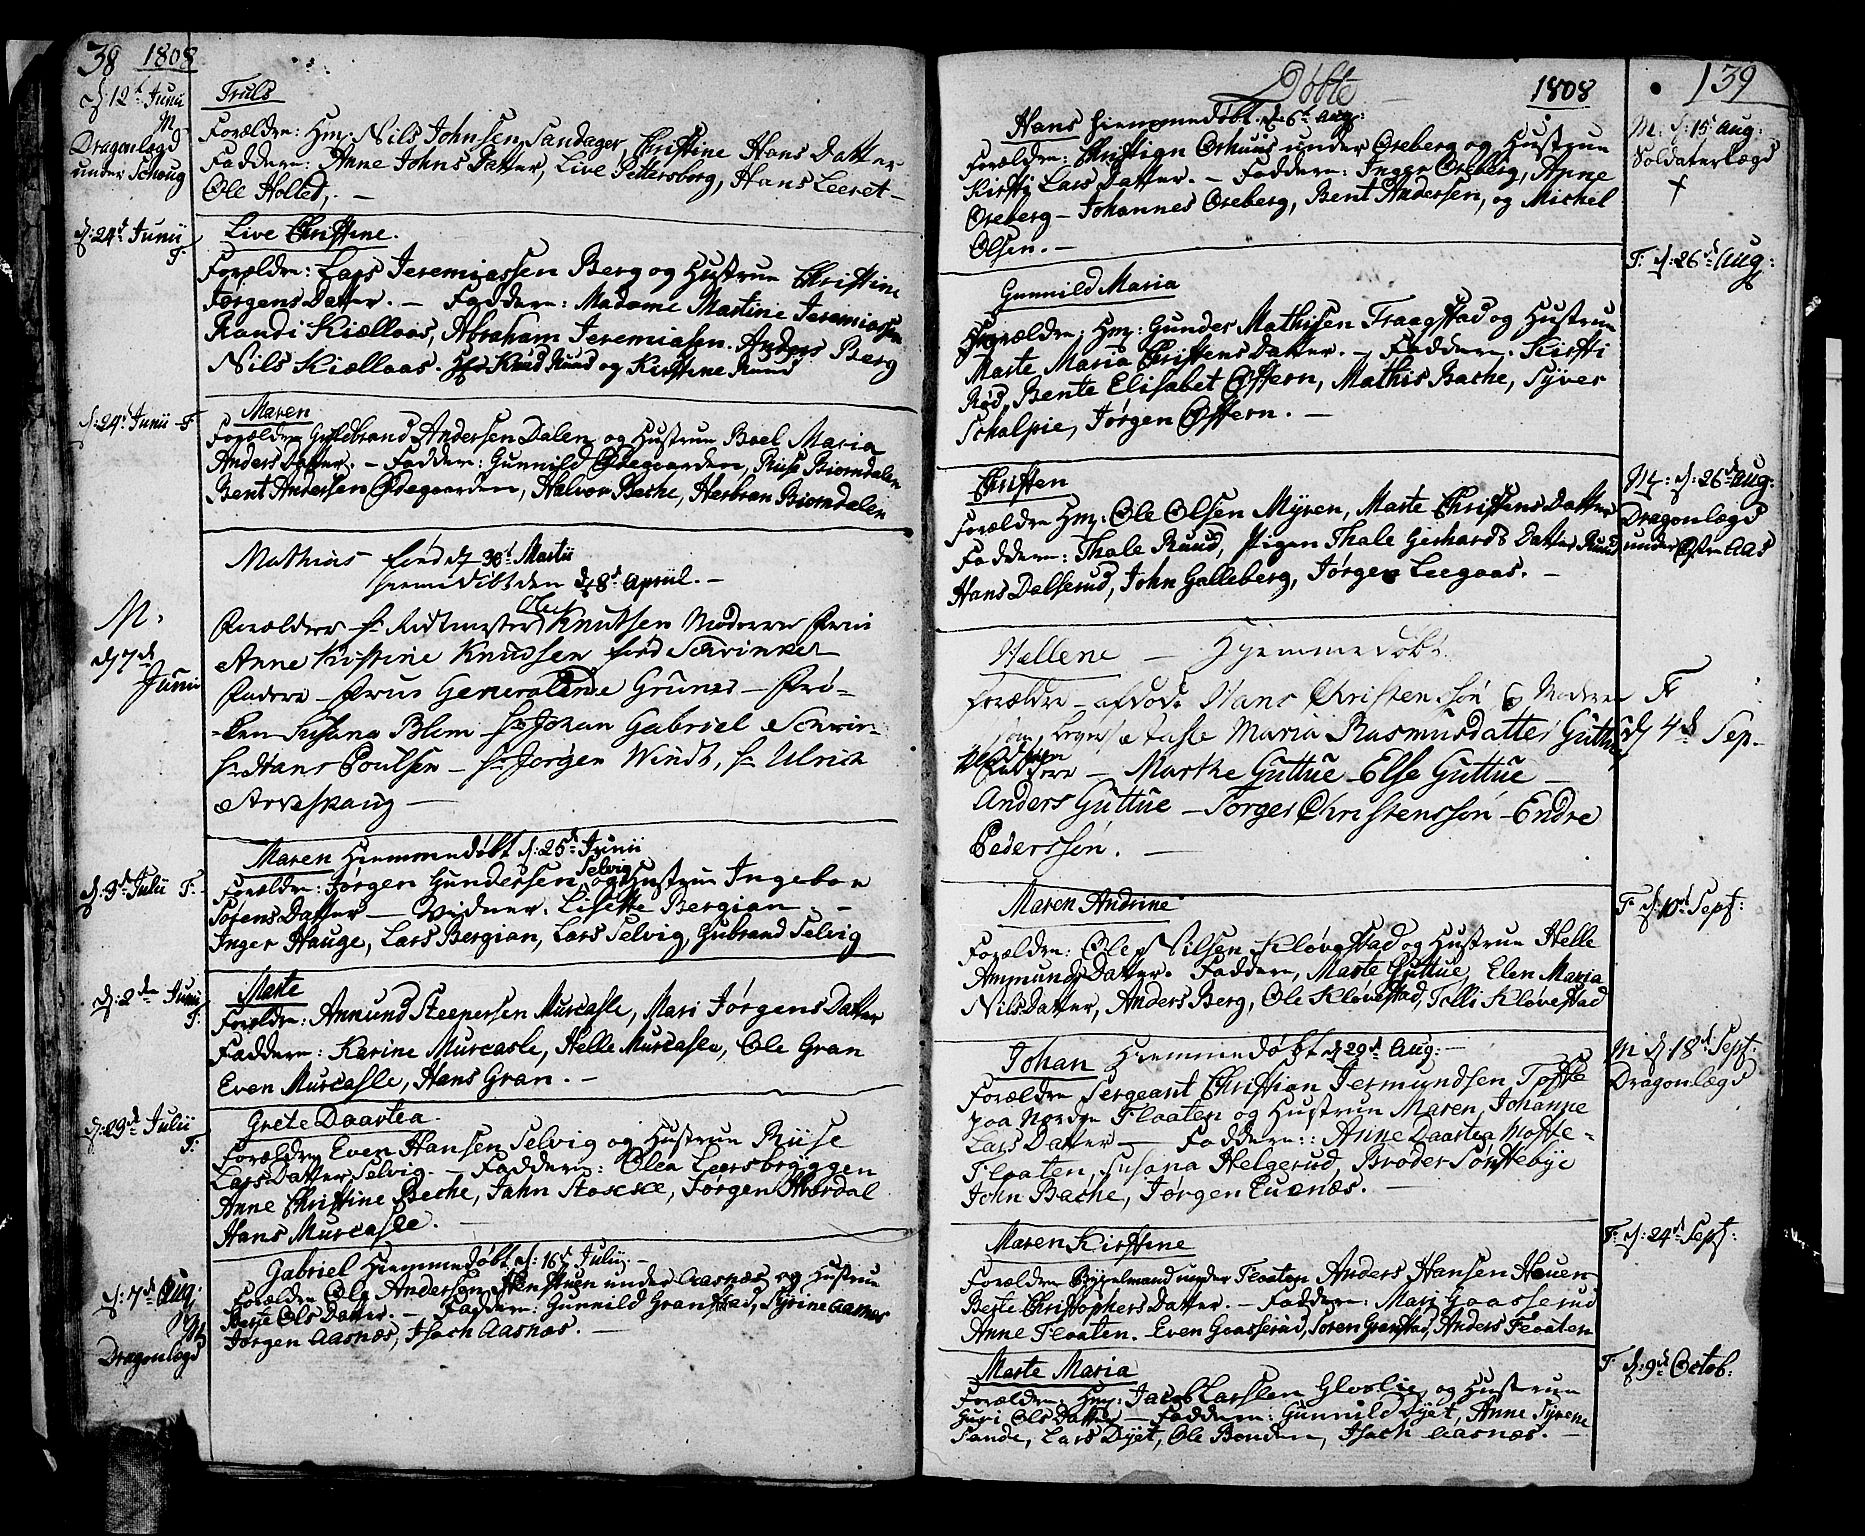 38 1808
d: 12t Junii
M.
Dragonlægd
under Schoug
Truls
Forældre: Hmd. Nils Johnsen Sandager Christine Hans Datter
Faddere: Anne Johns Datter, Live Pettersborg, Hans Leeret
Ole Holled, -
d: 24d Junii
F:
Live Christine.
Forældre: Lars Jeremiassen Berg og Hustrue Christine
Jørgens Datter. - Faddere: Madame Martine Jeremiassen
Randi Kiællaas, Abraham Jeremiassn. Anders Berg
Nils Kiællaas. Hr Knud Ruud og Kirstine Ruud
d: 24d Junii F
Maren
Forældre Guldbrand Andersen Dalen og Hustrue Boel Maria
Anders Datter. - Faddere: Gunnild Ødegaarden, Riise Biorndalen
Bent Andersen Ødegaarden, Halvor Bache, Herbran Biorndalen
M.
d 7d
Junii
Mathias - fød d 30t Martii
hiemedøbt den d 8d Apriil. -
Forældre Hr Ridtmester Ole Knutsen Moderen Frue
Anne Kistine Knudsen fød Schvinkel
Fadere - Frue Generalinde Grüner - Frø-
ken Susana Blom - Hr Johan Gabriel Schwin-
Hr Hans Poulsen - Hr Jørgen Windt, Hr Ulrich
Arveskoug -
d: 3d Julii F:
Maren Hiemmedøbt d: 25d Junii
Forældre: Jørgen Gundersen Selvig og Hustrue Ingebor
Sørens Datter - Vidner. Lisette Bergian. -
Inger Hauge, Lars Bergian, Lars Selvig, Gubrand Selvig
d: 2den Junii
F:
Marte
Forældre: Anmund Steenersen Murcasle, Mari Jørgens Datter
Faddere: Karine Murcasle, Helle Murcasle, Ole Gran
Even Murcasle, Hans Gran. -
d: 29d Julii
F:
Grete Daartea.
Forældre Even Hansen Selvig og Hustrue Riise
Lars Datter Selvig. - Faddere: Olea Leersbryggen
Anne Christine Beche, Jahn Stocke, Jørgen Hvardal
Hans Murcasle.
d: 7d Aug:
M
Dragonlægd
Gabriel Hiemmedøbt d: 16d Julii -
Forældre Ole Andersen Stenstuen under Aasnæs og Hustrue
Berte Ols Datter. - Faddere: Gunnild Granstad, Syrine Aasnæs
Jørgen Aasnæs, Isach Aasnæs. -
Døbte 1808 139
Hans hiemmedøbt d: 6t Aug:
Forældre: Christian Orhuus under Oreberg og Hustrue
Kirsti Lars Datter. - Faddere: Inger Oreberg, Anne
Oreberg - Johannes Oreberg, Bent Andersen, og Michel
Olsen. -
M: d: 15 Aug:
Soldaterlægd
†
F: d: 26d Aug:
Gunnild Maria
Forældre: Hmd: Gunder Mathisen Fraagstad og Hustrue
Marte Maria Christens Datter. - Faddere. Kirsti
Rød, Bente Elisabet Offern, Mathis Bache, Syver
Schalpie, Jørgen Offern. -
M: d: 26d Aug:
Dragonlægd
under Østre Aas
Christen
Forældre Hmd: Ole Olsen Myren, Marte Christens Datter
Faddere: Thale Ruud, Pigen Thale Gerhards Datter Ruud
Hans Delserud, John Galleberg, Jørgen Leegaas. -
Hellene - Hjemmedøbt.
Forældre - afdøde Hans Christenssøn & Moderen
Aasle Maria Rasmusdatter Guttue
F
d 4d Sep.
Faddere - Marthe Guttue - Else Guttue -
Anders Guttue - Torger Christenssøn - Endre
Pederssøn. -
F: d: 10d Sept:
Maren Andrine
Forældre: Ole Nilsen Kløvestad og Hustrue Helle
Ammunds Datter. Faddere, Marte Guttue, Elen Maria
Nils Datter, Anders Berg, Ole Kløvestad, Tolli Kløvestad
M d 18d Sept:
Dragonlægd
Johan Hiemmedøbt d 29d Aug: -
Forældre Sergeant Christian Jermundsen Tofte
paa Nordre Floaten og Hustrue Maren Johanne
Lars Datter - Faddere:: Anne Daartea Moste-
Floaten, Susana Helgerud, Broder Sørstebye
John Bache, Jørgen Euenæs. -
F: d: 24d Sept:
Maren Kirstine
Forældre Bygselmand under Floaten Anders Hansen Hauen
Berte Christophers Datter. - Faddere: Mari Gaasserud
Anne Floaten. Even Gaasserud, Soren Granstad, Anders Floaten
F: d: 9d Octob:
Marte Maria
Forældre: Hmd: Jacob Larssen Gloslie og Hustrue
Guri Ols Datter - Faddere: Gunnild Dyet, Anne Syrene
Sande, Lars Dyet, Ole Bonden, Isach Aasnæs. -